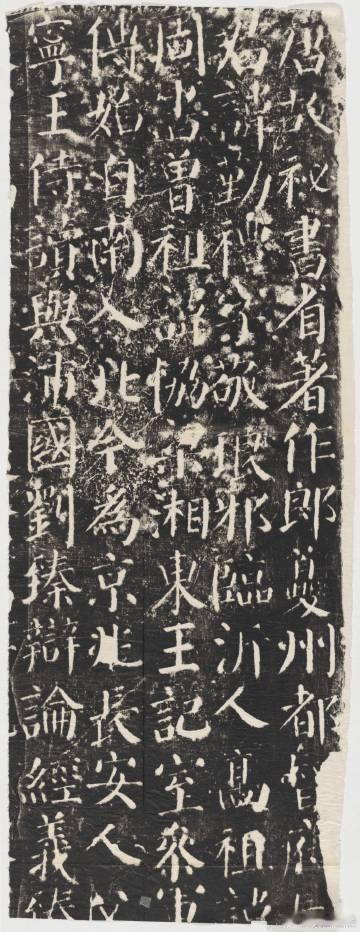 唐故祕書省著作郎夔州都督府長
君諱勤禮字敬琅邪臨沂人高祖諱
周書曾祖諱協梁湘東王記室參軍
傳始自南入北今為京兆長安人父
寧王侍讀與沛國劉臻辯論經義臻